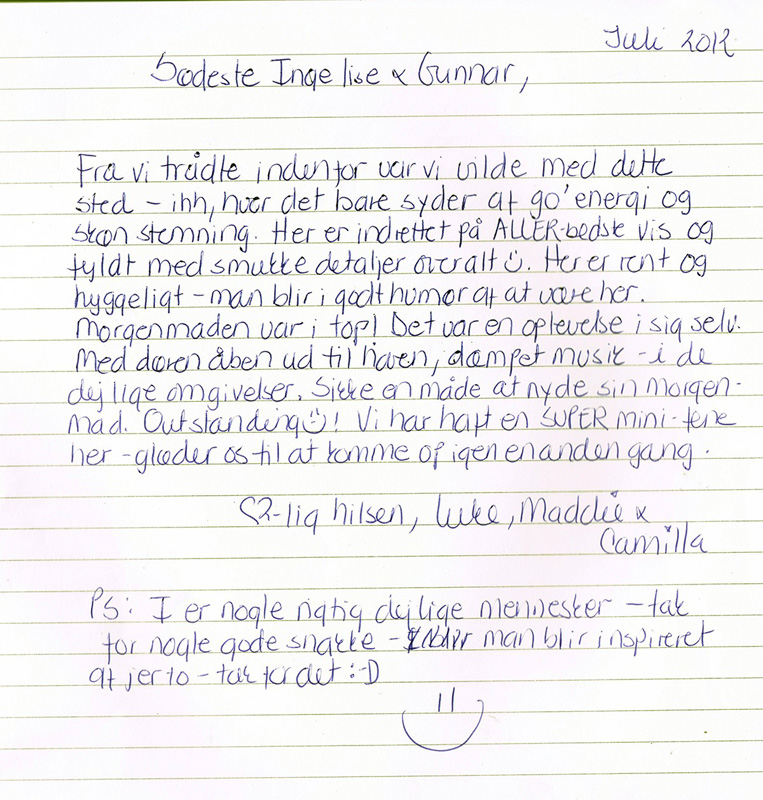 Juli 2012
Sødeste Inge lise & Gunnar,
Fra vi trådte indenfor var vi vilde med dette
sted – ihh, hvor det bare syder af go' energi og
skøn stemning. Her er indrettet på ALLER-bedste vis og
fyldt med smukke detaljer overalt☺. Her er rent og
hyggeligt – man blir i godt humør af at være her.
Morgenmaden var i top! Det var en oplevelse i sig selv.
Med døren åben ud til haven, dæmpet musik – i de
dejlige omgivelser. Sikke en måde at nyde sin morgen-
mad. Outstanding☺! Vi har haft en SUPER mini-ferie
her – glæder os til at komme op igen en anden gang.
♡-lig hilsen, Luke, Maddie &
Camilla
PS: I er nogle rigtig dejlige mennesker – tak
for nogle gode snakke – man blir inspireret
af jer to – tak for det :-D